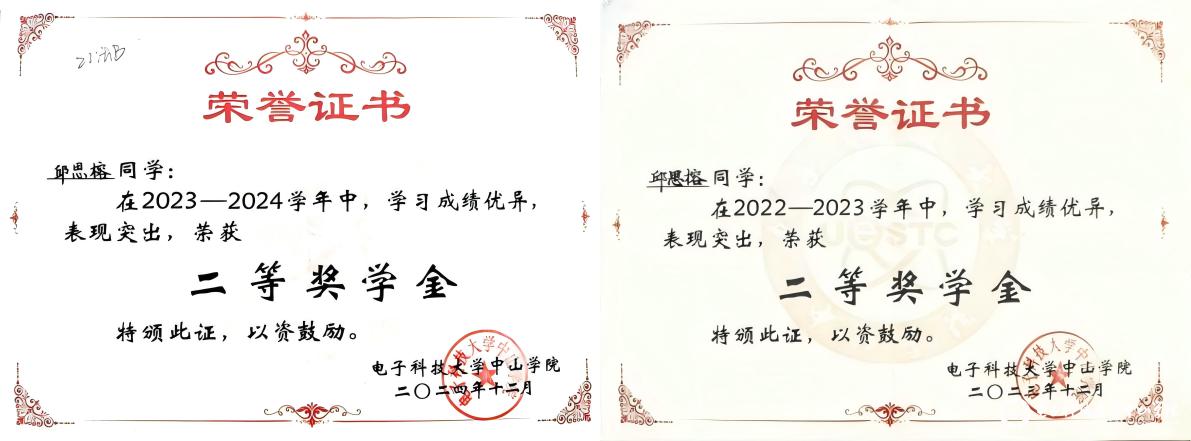 荣誉证书
邱思榕同学：
在2023—2024学年中，学习成绩优异，
表现突出，荣获
二等奖学金
特颁此证，以资鼓励。
电子科技大学中山学院
二〇二四年十二月
荣誉证书
邱思榕同学：
在2022—2023学年中，学习成绩优异，
表现突出，荣获
二等奖学金
特颁此证，以资鼓励。
电子科技大学中山学院
二〇二三年十二月
UESTC